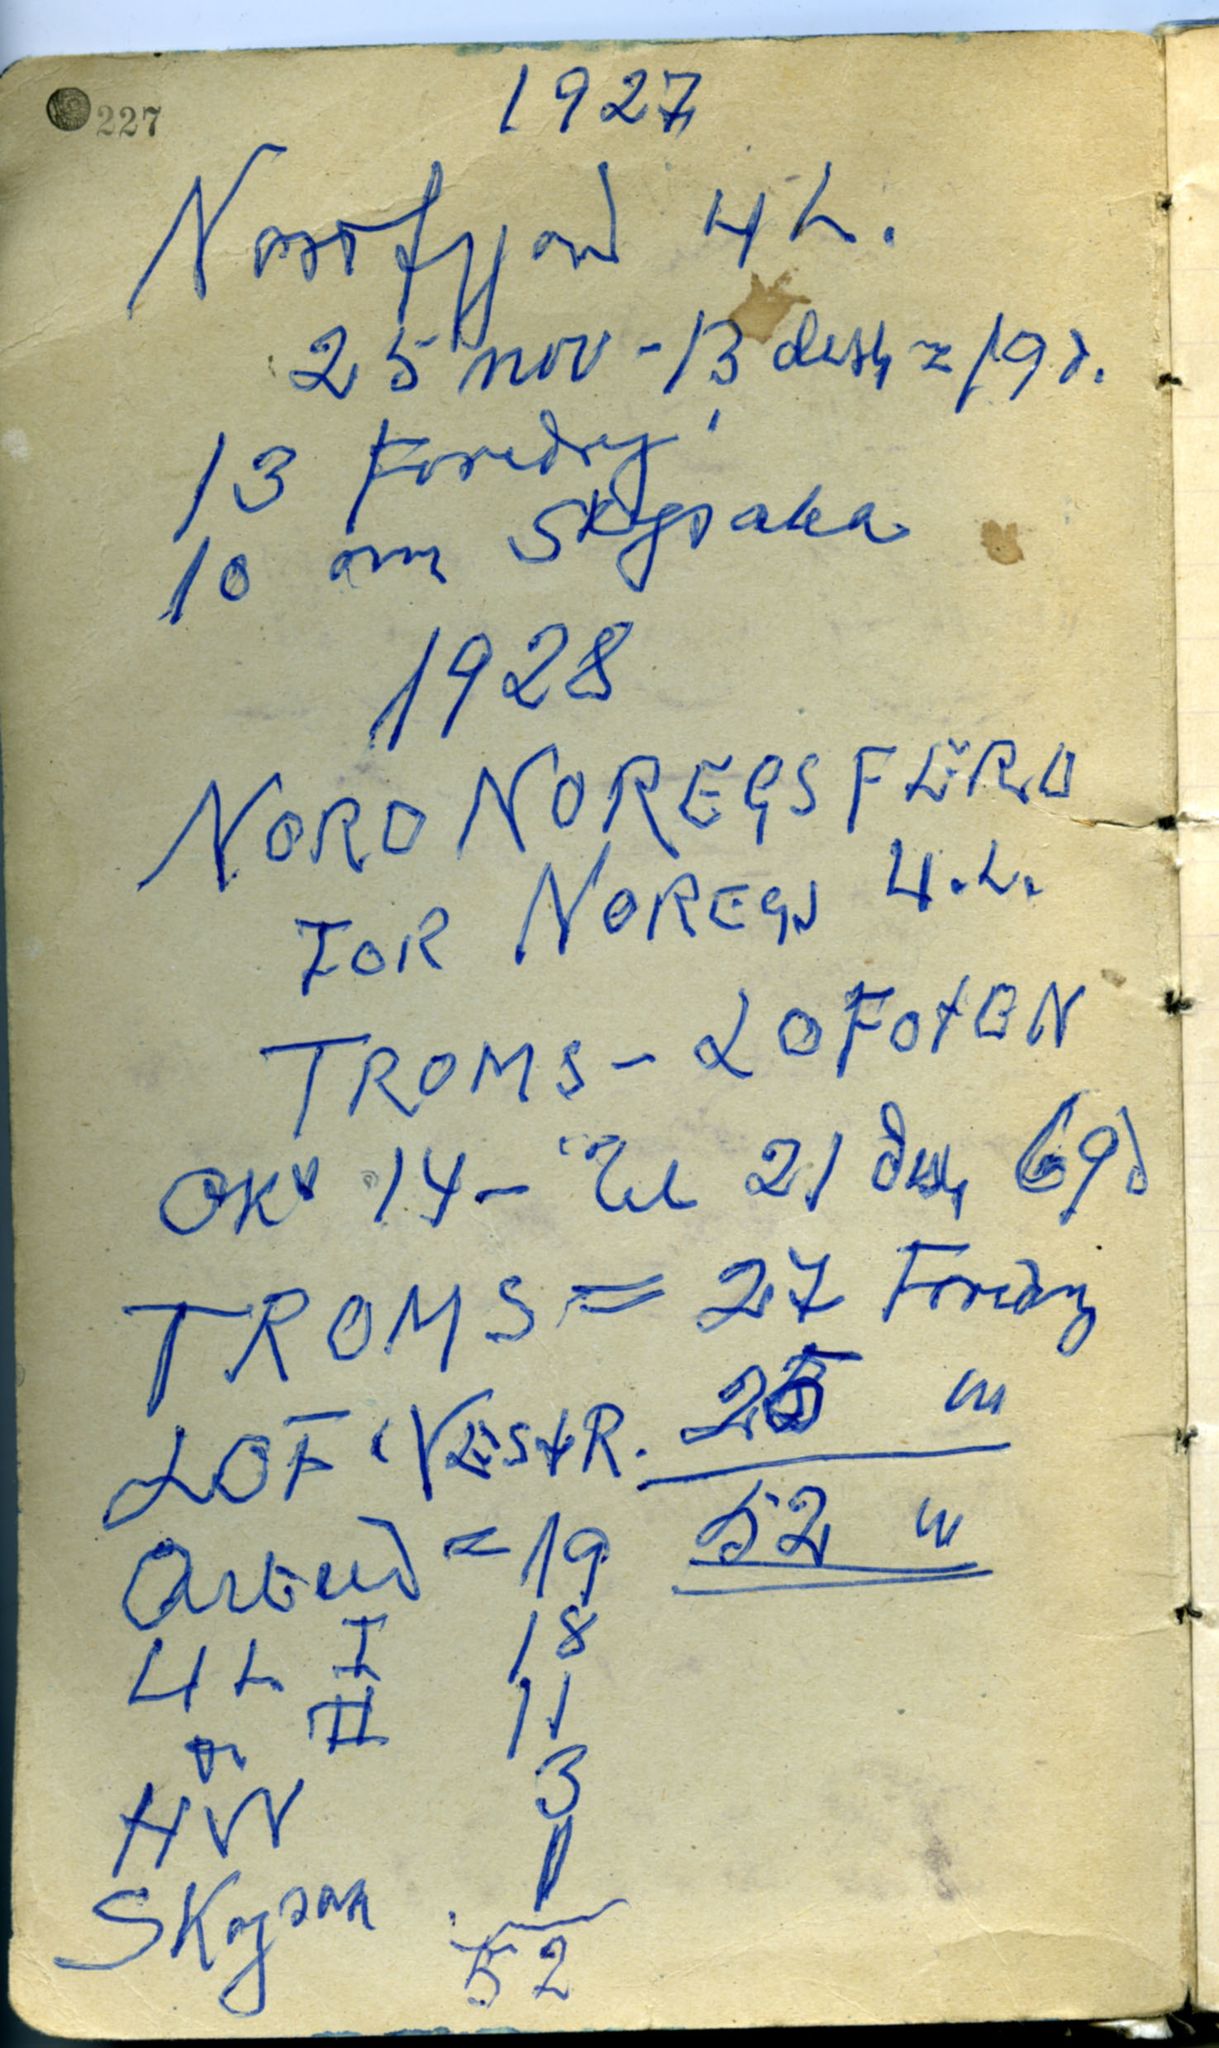 227
1927
Nordfjord U L.
25 nov - 13 des = 19 d.
13 Foredrag
10 om Skogsaka
1928
NORD NOREGSFERD
FOR NOREGS U.L.
TROMS - LOFOTEN
OKT 14 - til 21 des, 69 d
TROMS = 27 Foredrag
LOF VESTR. 25 "
Arbeid = 19 52 "
U L I 18
" II 11
HW 3
Skogsak 1
52